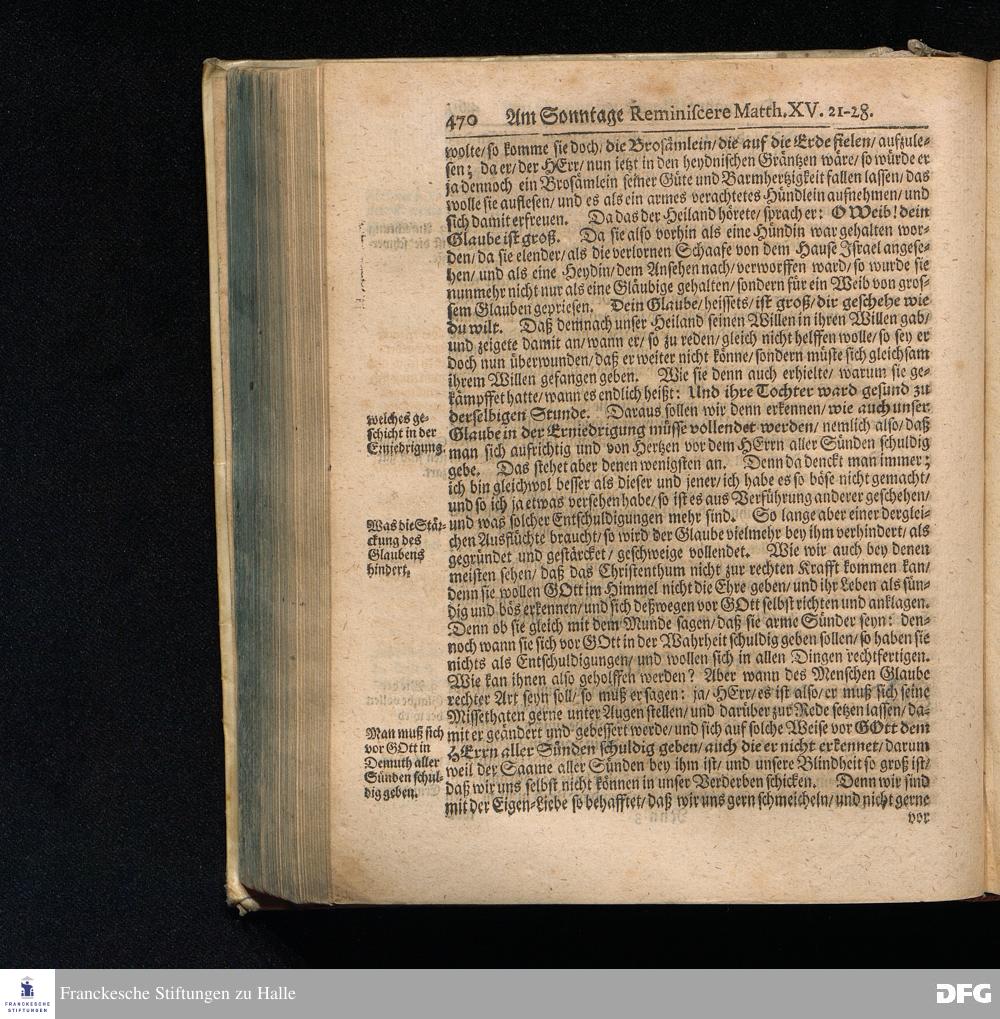 470 Am Sonntage Reminiscere Matth. XV. 21-28.
wolte/ so komme sie doch/ die Brosämlein/ die auf die Erde fielen/ aufzule-
sen; da er/ der HErr/ nun ietzt in den heydnischen Gräntzen wäre/ so würde er
ja dennoch ein Brosämlein seiner Güte und Barmhertzigkeit fallen lassen/ das
wolle sie auflesen/ und es als ein armes verachtetes Hündlein aufnehmen/ und
sich damit erfreuen. Da das der Heiland hörete/ sprach er: O Weib! dein
Glaube ist groß. Da sie also vorhin als eine Hündin war gehalten wor-
den/ da sie elender/ als die verlornen Schaafe von dem Hause Israel angese-
hen/ und als eine Heydin/ dem Ansehen nach/ verworffen ward/ so wurde sie
nunmehr nicht nur als eine Gläubige gehalten/ sondern für ein Weib von gros-
sem Glauben gepriesen. Dein Glaube/ heissets/ ist groß/ dir geschehe wie
du wilt. Daß demnach unser Heiland seinen Willen in ihren Willen gab/
und zeigete damit an/ wann er/ so zu reden/ gleich nicht helffen wolle/ so sey er
doch nun überwunden/ daß er weiter nicht könne/ sondern müste sich gleichsam
ihrem Willen gefangen geben. Wie sie denn auch erhielte/ warum sie ge-
kämpffet hatte/ wann es endlich heißt: Und ihre Tochter ward gesund zu
derselbigen Stunde. Daraus sollen wir denn erkennen/ wie auch unser
Glaube in der Erniedrigung müsse vollendet werden/ nemlich also/ daß
man sich aufrichtig und von Hertzen vor dem HErrn aller Sünden schuldig
gebe. Das stehet aber denen wenigsten an. Denn da denckt man immer;
ich bin gleichwol besser als dieser und jener/ ich habe es so böse nicht gemacht/
und so ich ja etwas versehen habe/ so ist es aus Verführung anderer geschehen/
und was solcher Entschuldigungen mehr sind. So lange aber einer derglei-
chen Ausflüchte braucht/ so wird der Glaube vielmehr bey ihm verhindert/ als
gegründet und gestärcket/ geschweige vollendet. Wie wir auch bey denen
meisten sehen/ daß das Christenthum nicht zur rechten Krafft kommen kan/
denn sie wollen GOtt im Himmel nicht die Ehre geben/ und ihr Leben als sün-
dig und bös erkennen/ und sich deßwegen vor GOtt selbst richten und anklagen.
Denn ob sie gleich mit dem Munde sagen/ daß sie arme Sünder seyn: den-
noch wann sie sich vor GOtt in der Wahrheit schuldig geben sollen/ so haben sie
nichts als Entschuldigungen/ und wollen sich in allen Dingen rechtfertigen.
Wie kan ihnen also geholffen werden? Aber wann des Menschen Glaube
rechter Art seyn soll/ so muß er sagen: ja/ HErr/ es ist also/ er muß sich seine
Missethaten gerne unter Augen stellen/ und darüber zur Rede setzen lassen/ da-
mit er geändert und gebessert werde/ und sich auf solche Weise vor GOtt dem
HErrn aller Sünden schuldig geben/ auch die er nicht erkennet/ darum
weil der Saame aller Sünden bey ihm ist/ und unsere Blindheit so groß ist/
daß wir uns selbst nicht können in unser Verderben schicken. Denn wir sind
mit der Eigen-Liebe so behafftet/ daß wir uns gern schmeicheln/ und nicht gerne
vor
welches ge-
schicht in der
Erniedrigung.
Was die Stär-
ckung des
Glaubens
hindert.
Man muß sich
vor GOtt in
Demuth aller
Sünden schul-
dig geben.
FRANCKESCHE
STIFTUNGEN
Franckesche Stiftungen zu Halle
DFG